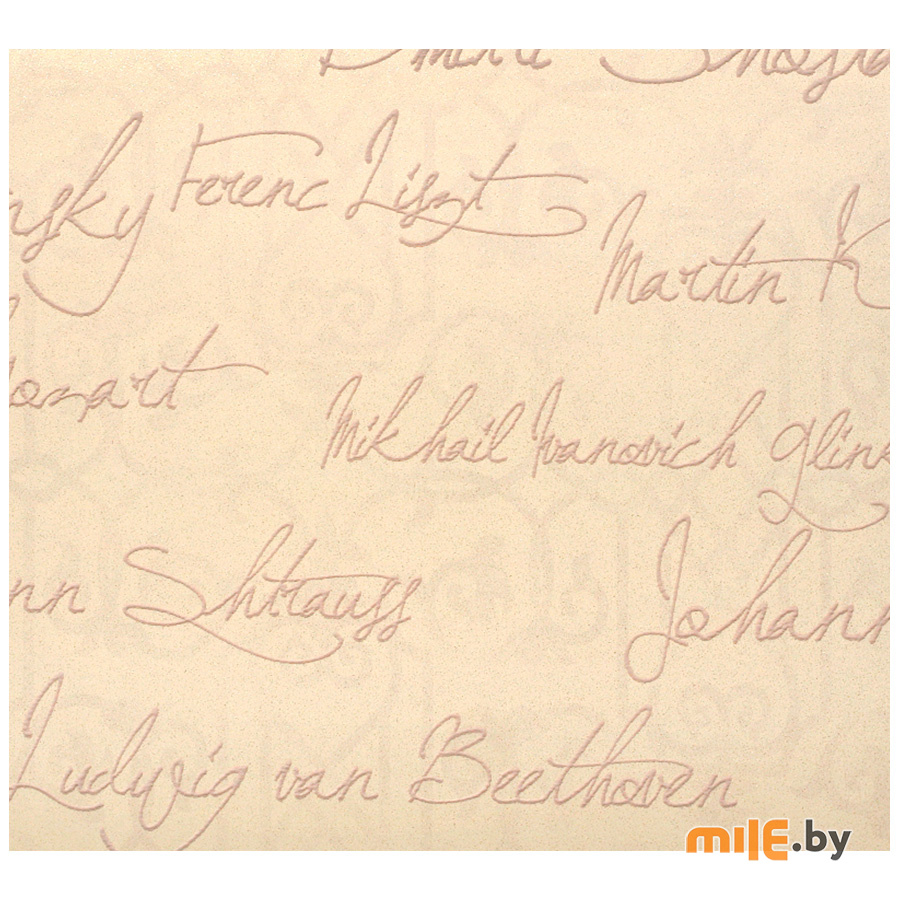 Ferenc Liszt
nsky
Martin K
Mozart
Mikhail Ivanovich Glink
nn Shtrauss
Johann
Ludwig van Beethoven
mile.by